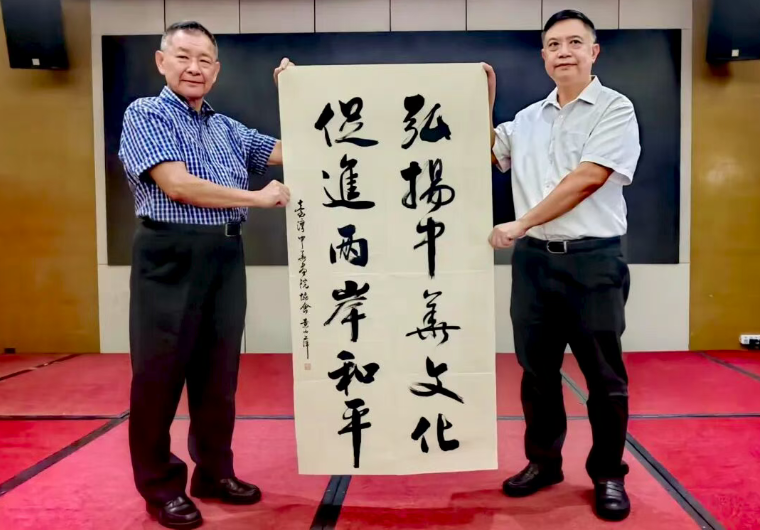 弘揚中華文化
促進兩岸和平
臺灣中華書院協會